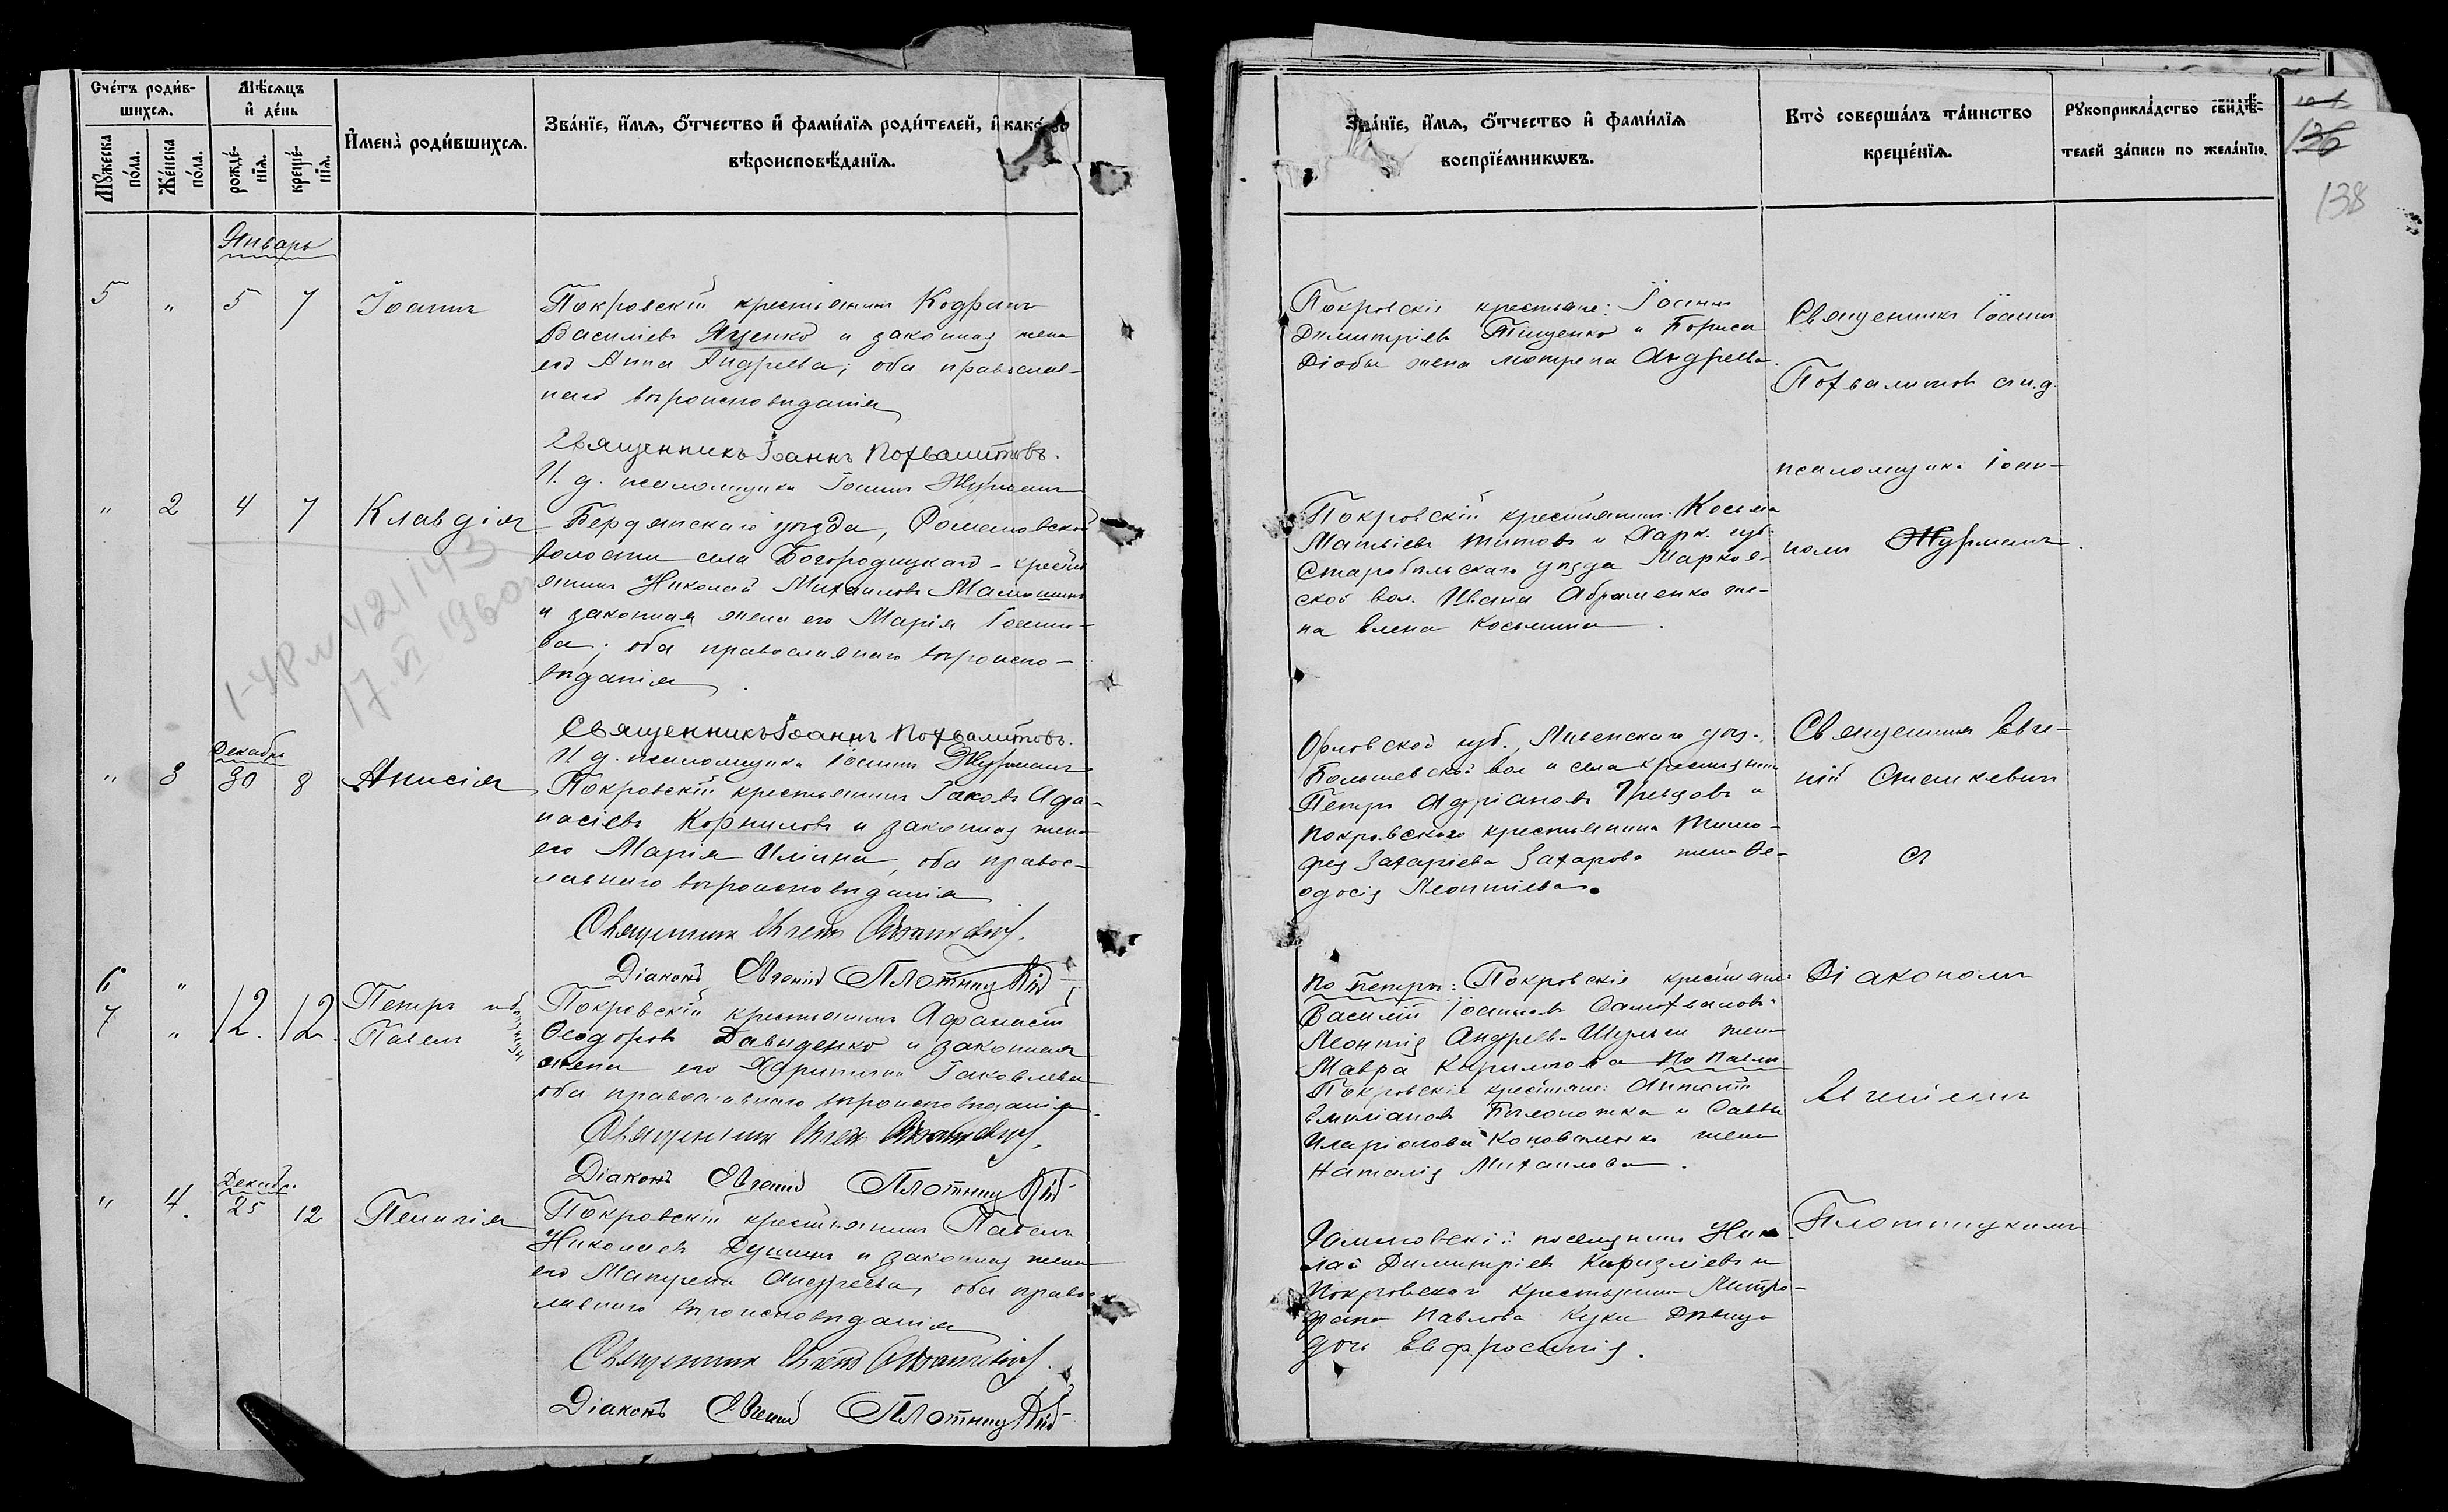 Счетъ родив-
шихся.
Мѣсяцъ
и день
Имена родившихся.
Званіе, имя, отчество и фамилія родителей, и какого
вѣроисповѣданія.
Мужеска
пола.
Женска
пола.
рожде-
нія.
креще-
нія.
Январь
5 " 5 7 Іоаннъ
Покровскій крестьянинъ
Василіевъ Яценко и законная жена
его Анна Андреева; оба православ-
наго вѣроисповѣданія
Священникъ Іоаннъ Похвалитовъ.
И. д. псаломщика Іоаннъ
" 2 4 7 Клавдія
Бердянскаго уѣзда, Романовской
волости села Богородицкаго крестья
янинъ Николай Михаиловъ
и законная жена его Марія Іоанно-
ва; оба православнаго вѣроиспо-
вѣданія
1-УР № 421143
17 VI 1960
Священникъ Іоаннъ Похвалитовъ.
И. д. псаломщика Іоаннъ
Декабрь
" 3 30 8 Анисія
Покровскій крестьянинъ Іаковъ Афа-
насіевъ Корниловъ и законная жена
его Марія Иліина, оба правос-
лавнаго вѣроисповѣданія
Священникъ
Діаконъ Евгеній Плотницкій
6 "
7 " 12. 12. Петръ
Павелъ
Покровскій крестьянинъ Афанасій
Ѳеодоровъ Давиденко и законная
жена его Харитина Іаковлева
оба православнаго вѣроисповѣданія.
Священникъ
Діаконъ Евгеній Плотницкій
Декабр.
" 4. 25 12 Пелагія
Покровскій крестьянинъ Павелъ
Николаевъ и законная жена
его Матрена Андреева, оба правос
лавнаго вѣроисповѣданія
Священникъ
Діаконъ Евгеній Плотницкій
Званіе, имя, отчество и фамилія
воспріемниковъ.
Кто совершалъ таинство
крещенія.
Рукоприкладство свидѣ-
телей записи по желанію.
136
138
Покровскіе крестьяне: Іоаннъ
Димитріевъ Тищенко и Бориса
жена Мотрена Андреева.
Священникъ Іоаннъ
Похвалитовъ
псаломщика Іоан-
номъ
Покровскій крестьянинъ Косьма
Матвіевъ Титовъ и Харк. губ.
Старобѣльскаго уѣзда
ской вол. Ивана Абраменко же-
на Елена Косьмина.
Орловской губ., Ливенскаго уѣз.
вол и села крестьянинъ
Петръ Адріановъ и
Покровскаго крестьянина Тимо-
фея Захаріева Захарова жена Ѳе-
одосія Леонтіева.
Священникъ Евге-
ній
По Петрѣ: Покровскіе крестьяне
Василій Іоанновъ Самохваловъ
Леонтія Андреева Шульги жена
Мавра Кириллова По Павлѣ
Покровскіе крестьяне: Антоній
Емиліановъ Бѣлоножка и Саввы
Иларіонова Коноваленко жена
Наталія Михаилова.
Діакономъ
Евгеніемъ
Плотницкимъ
поселянинъ Нико
лай Димитріевъ и
Покровскаго крестьянина Митро-
фана Павлова Куки дѣвица
дочь Евфросинія.